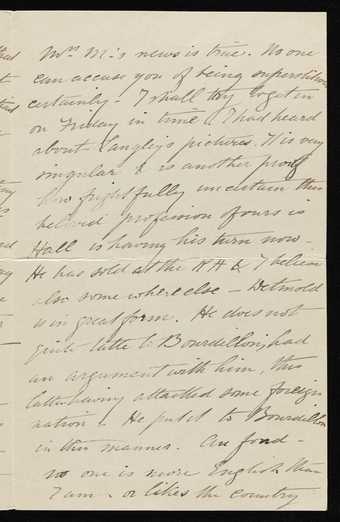 Mrs M's news is true. No one
can accuse you of being superstitious
certainly - I shall try to get in
on Friday in time. I had heard
about Langley's pictures. It is very
singular & is another proof
how frightfully uncertain this
beloved profession of ours is
Hall is having his turn now -
He has sold at the R H & I believe
also somewhere else - Detmold
is in great form. He does not
quite take to Bourdillon, had
an argument with him, this
latter having attacked some foreign
nation. He put it to Bourdillon
in this manner. Au fond -
no one is more English than
I am - or likes the country